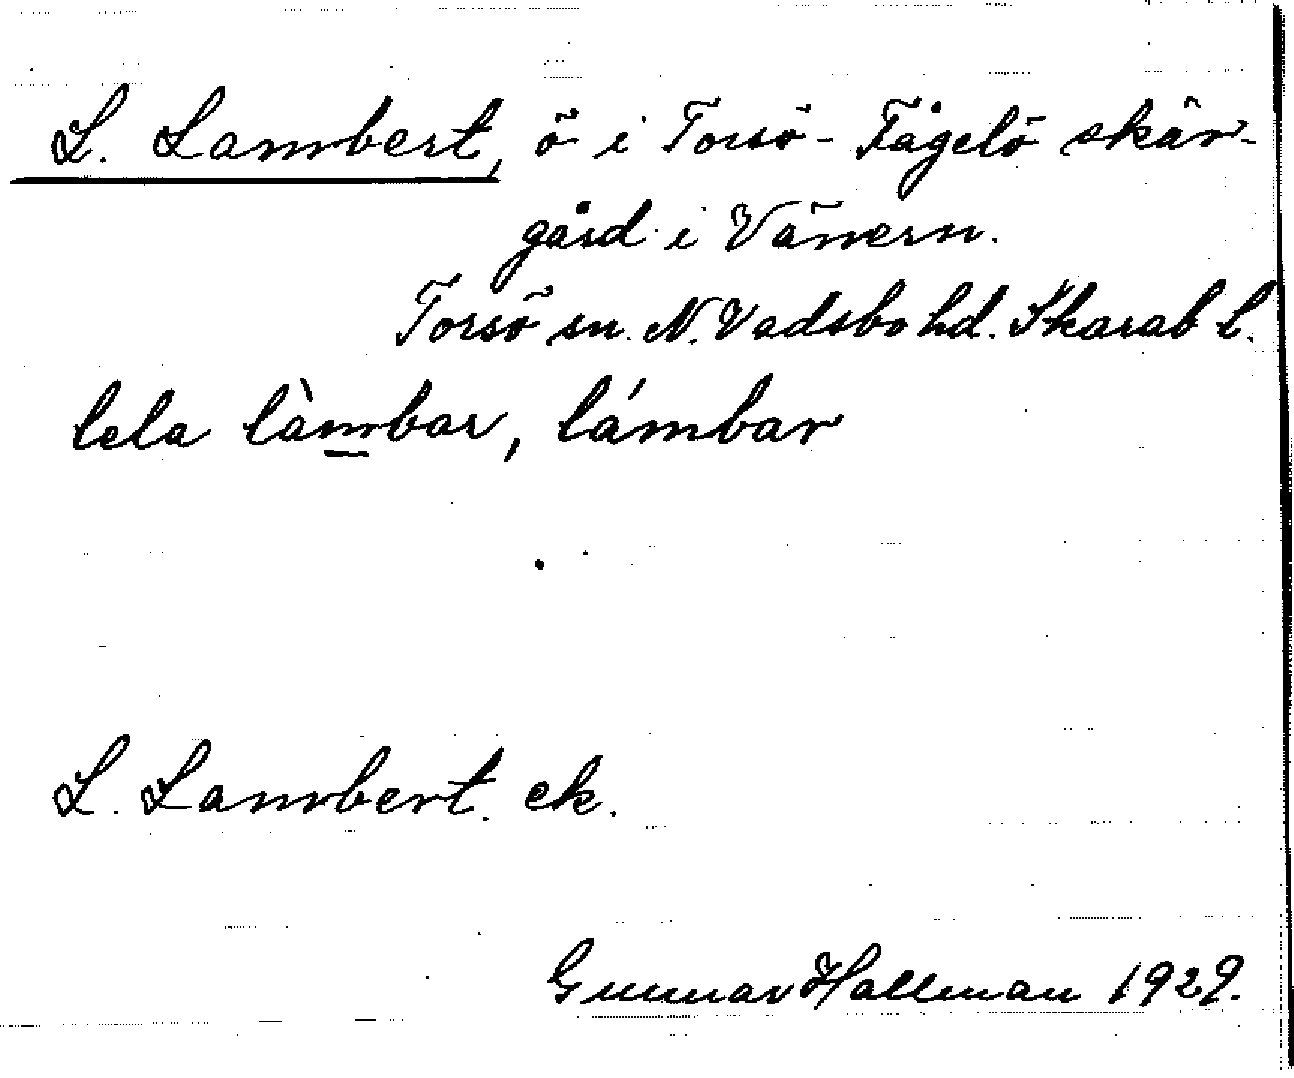 L. Lambert, ö i Torsö-Fågelö skär-
gård i Vänern.
Torsö sn. N. Vadsbo hd. Skarab l.
lela làmbar, lámbar
L. Lambert. ek.
Gunnar Hallman 1929.